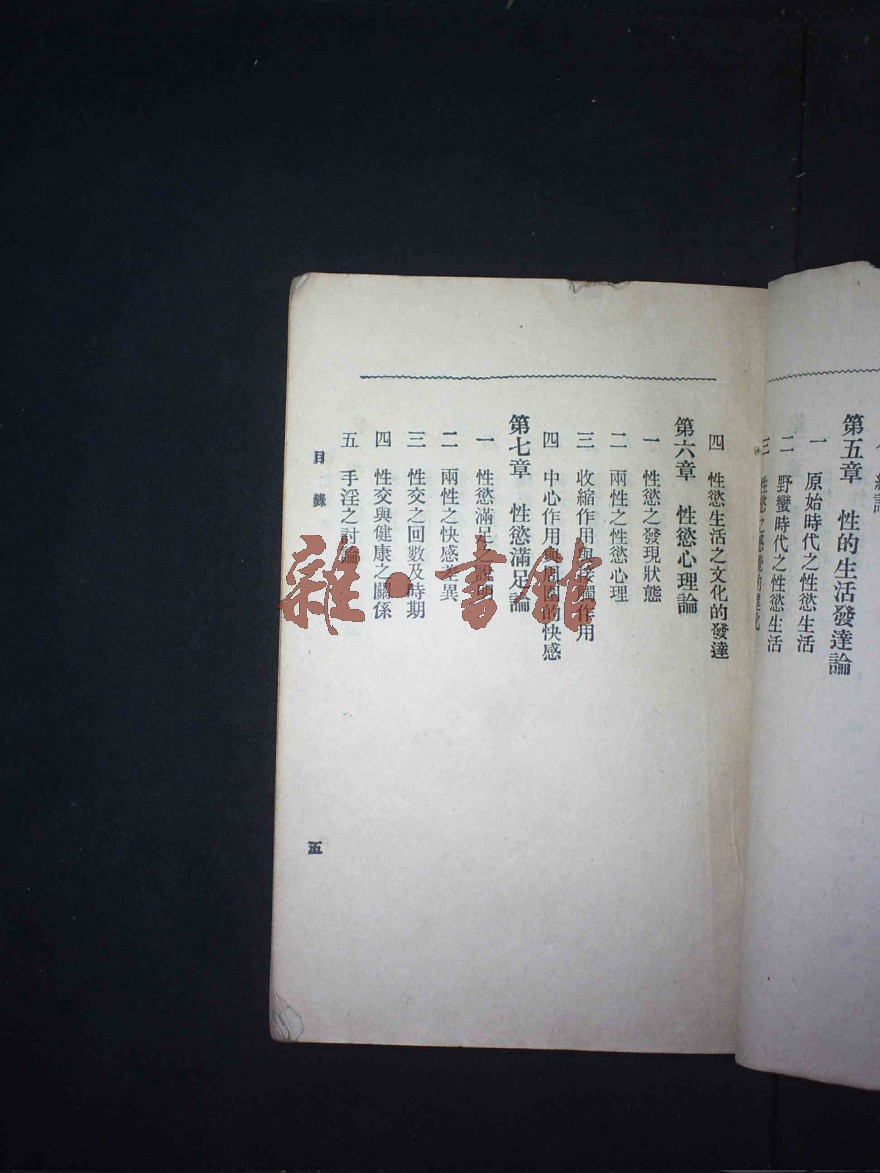 第五章　性的生活發達論
一　原始時代之性慾生活
二　野蠻時代之性慾生活
三　性慾之感覺的進化
四　性慾生活之文化的發達
第六章　性慾心理論
一　性慾之發現狀態
二　兩性之性慾心理
三　收縮作用與接觸作用
四　中心作用與周圍的快感
第七章　性慾滿足論
一　性慾滿足之說明
二　兩性之快感差異
三　性交之回數及時期
四　性交與健康之關係
五　手淫之討論
目錄
五
雜·書館